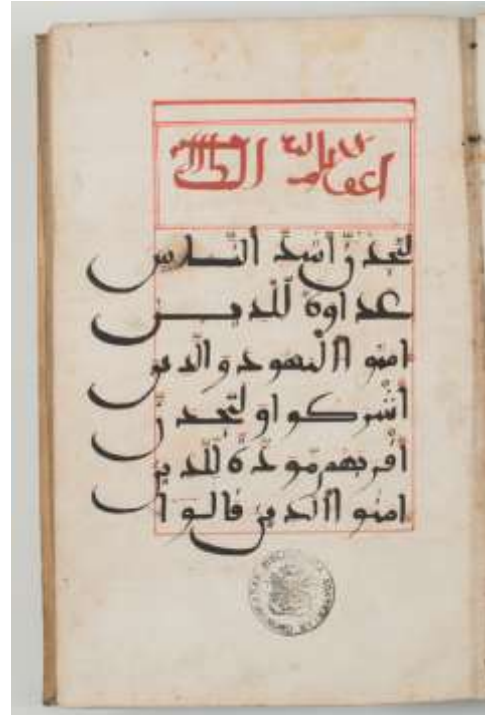 لتجدن أشد الناس
عداوة للذين
امنوا اليهود والذين
أشركوا ولتجدن
أقربهم مودة للذين
امنوا الذين قالوا